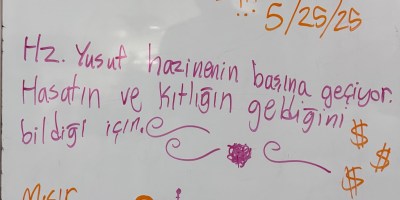 !!! 5/25/25
Hz. Yusuf hazinenin başına geçiyor.
Hasatın ve kıtlığın geldiğini
bildiği için.
$
$
$
Mısır